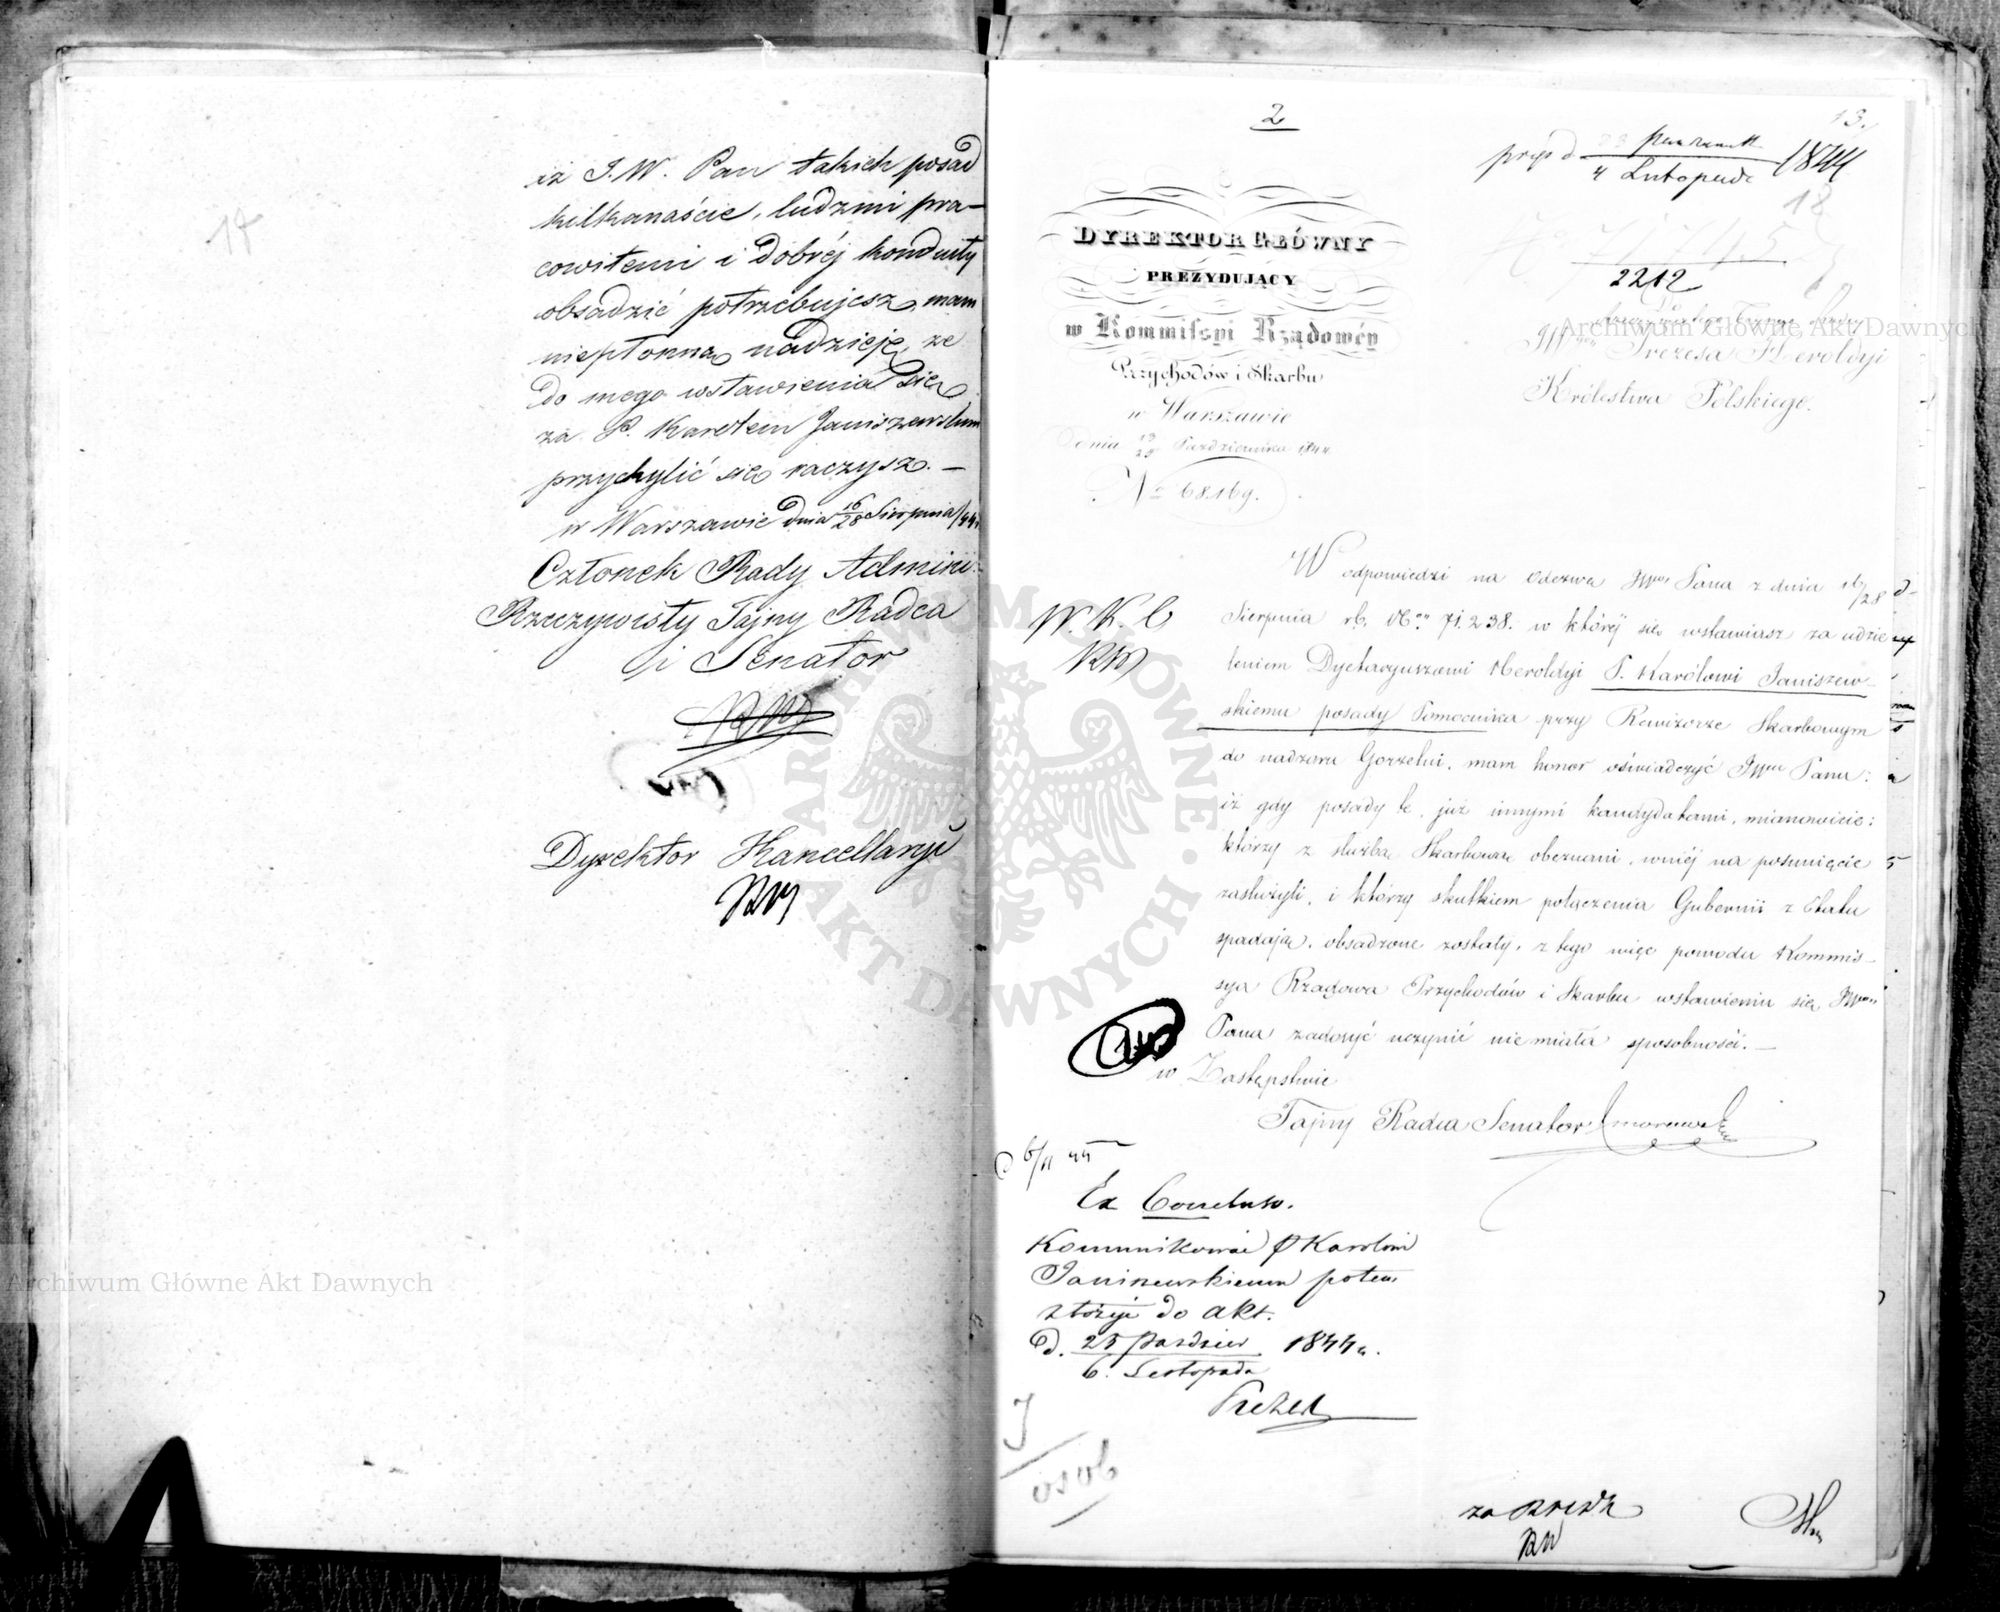 iż J.W. Pan takich posad
kilkanaście, ludzmi pra-
cowitemi i dobréj konduity
obsadzić potrzebujesz, mam
niepłonną nadzieję, że
do mego wstawienia się
za P. Karolem Janiszewskim
przychylić się raczysz. —
w Warszawie dnia 16/28 Sierpnia /44
Członek Rady Admini:
Rzeczywisty Tajny Radca
i Senator
Dyrektor Kancellaryi
2
13.
4 Listopada 1844
18
2212
DYREKTOR GŁÓWNY
PREZYDUJĄCY
w Kommissyi Rządowéy
Przychodów i Skarbu
w Warszawie
dnia 13/25 Października 1844
No 68169.
Prezesa Heroldyi
Królestwa Polskiego.
W odpowiedzi na odezwę JWgo Pana z dnia 16/28
Sierpnia rb. No 71.238. w któréj się wstawiasz za udzie
leniem Dyetaryuszowi Heroldyi P. Karólowi Janiszew-
skiemu posady Pomocnika przy Rewizorze Skarbowym
do nadzoru Gorzelni, mam honor oświadczyć JWmu Panu:
iż gdy posady te, już innymi kandydatami, mianowicie:
którzy z służbą Skarbową obeznani, w niéj na posunięcie
zasłużyli, i którzy skutkiem połączenia Gubernii z Etatu
spadają, obsadzone zostały, z tego więc powodu Kommis-
sya Rządowa Przychodów i Skarbu wstawieniu się JWgo
Pana zadosyć uczynić nie miała sposobności. —
w Zastępstwie
Tajny Radca Senator
6/11 44
Ex Concluso.
Komunikować P Karolowi
Janiszewskiemu potem
złożyć do akt.
D. 25 Paździer 1844 r.
6. Listopada
Prezes
osob
Archiwum Główne Akt Dawnych
Archiwum Główne Akt Dawnych
ARCHIWUM GŁÓWNE AKT DAWNYCH